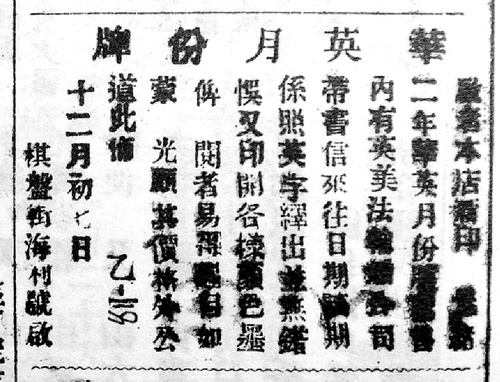 華英月份牌
啟者本店印
二年華英月份
內有英美法輪船公司
帶書信來往日期期
係照英字繹出並無錯
悞又印開各樣顏色墨
俾閱者易自如
蒙 光顧其價格外公
道此佈
十二月初七日
棋盤街海利號啟
乙-118